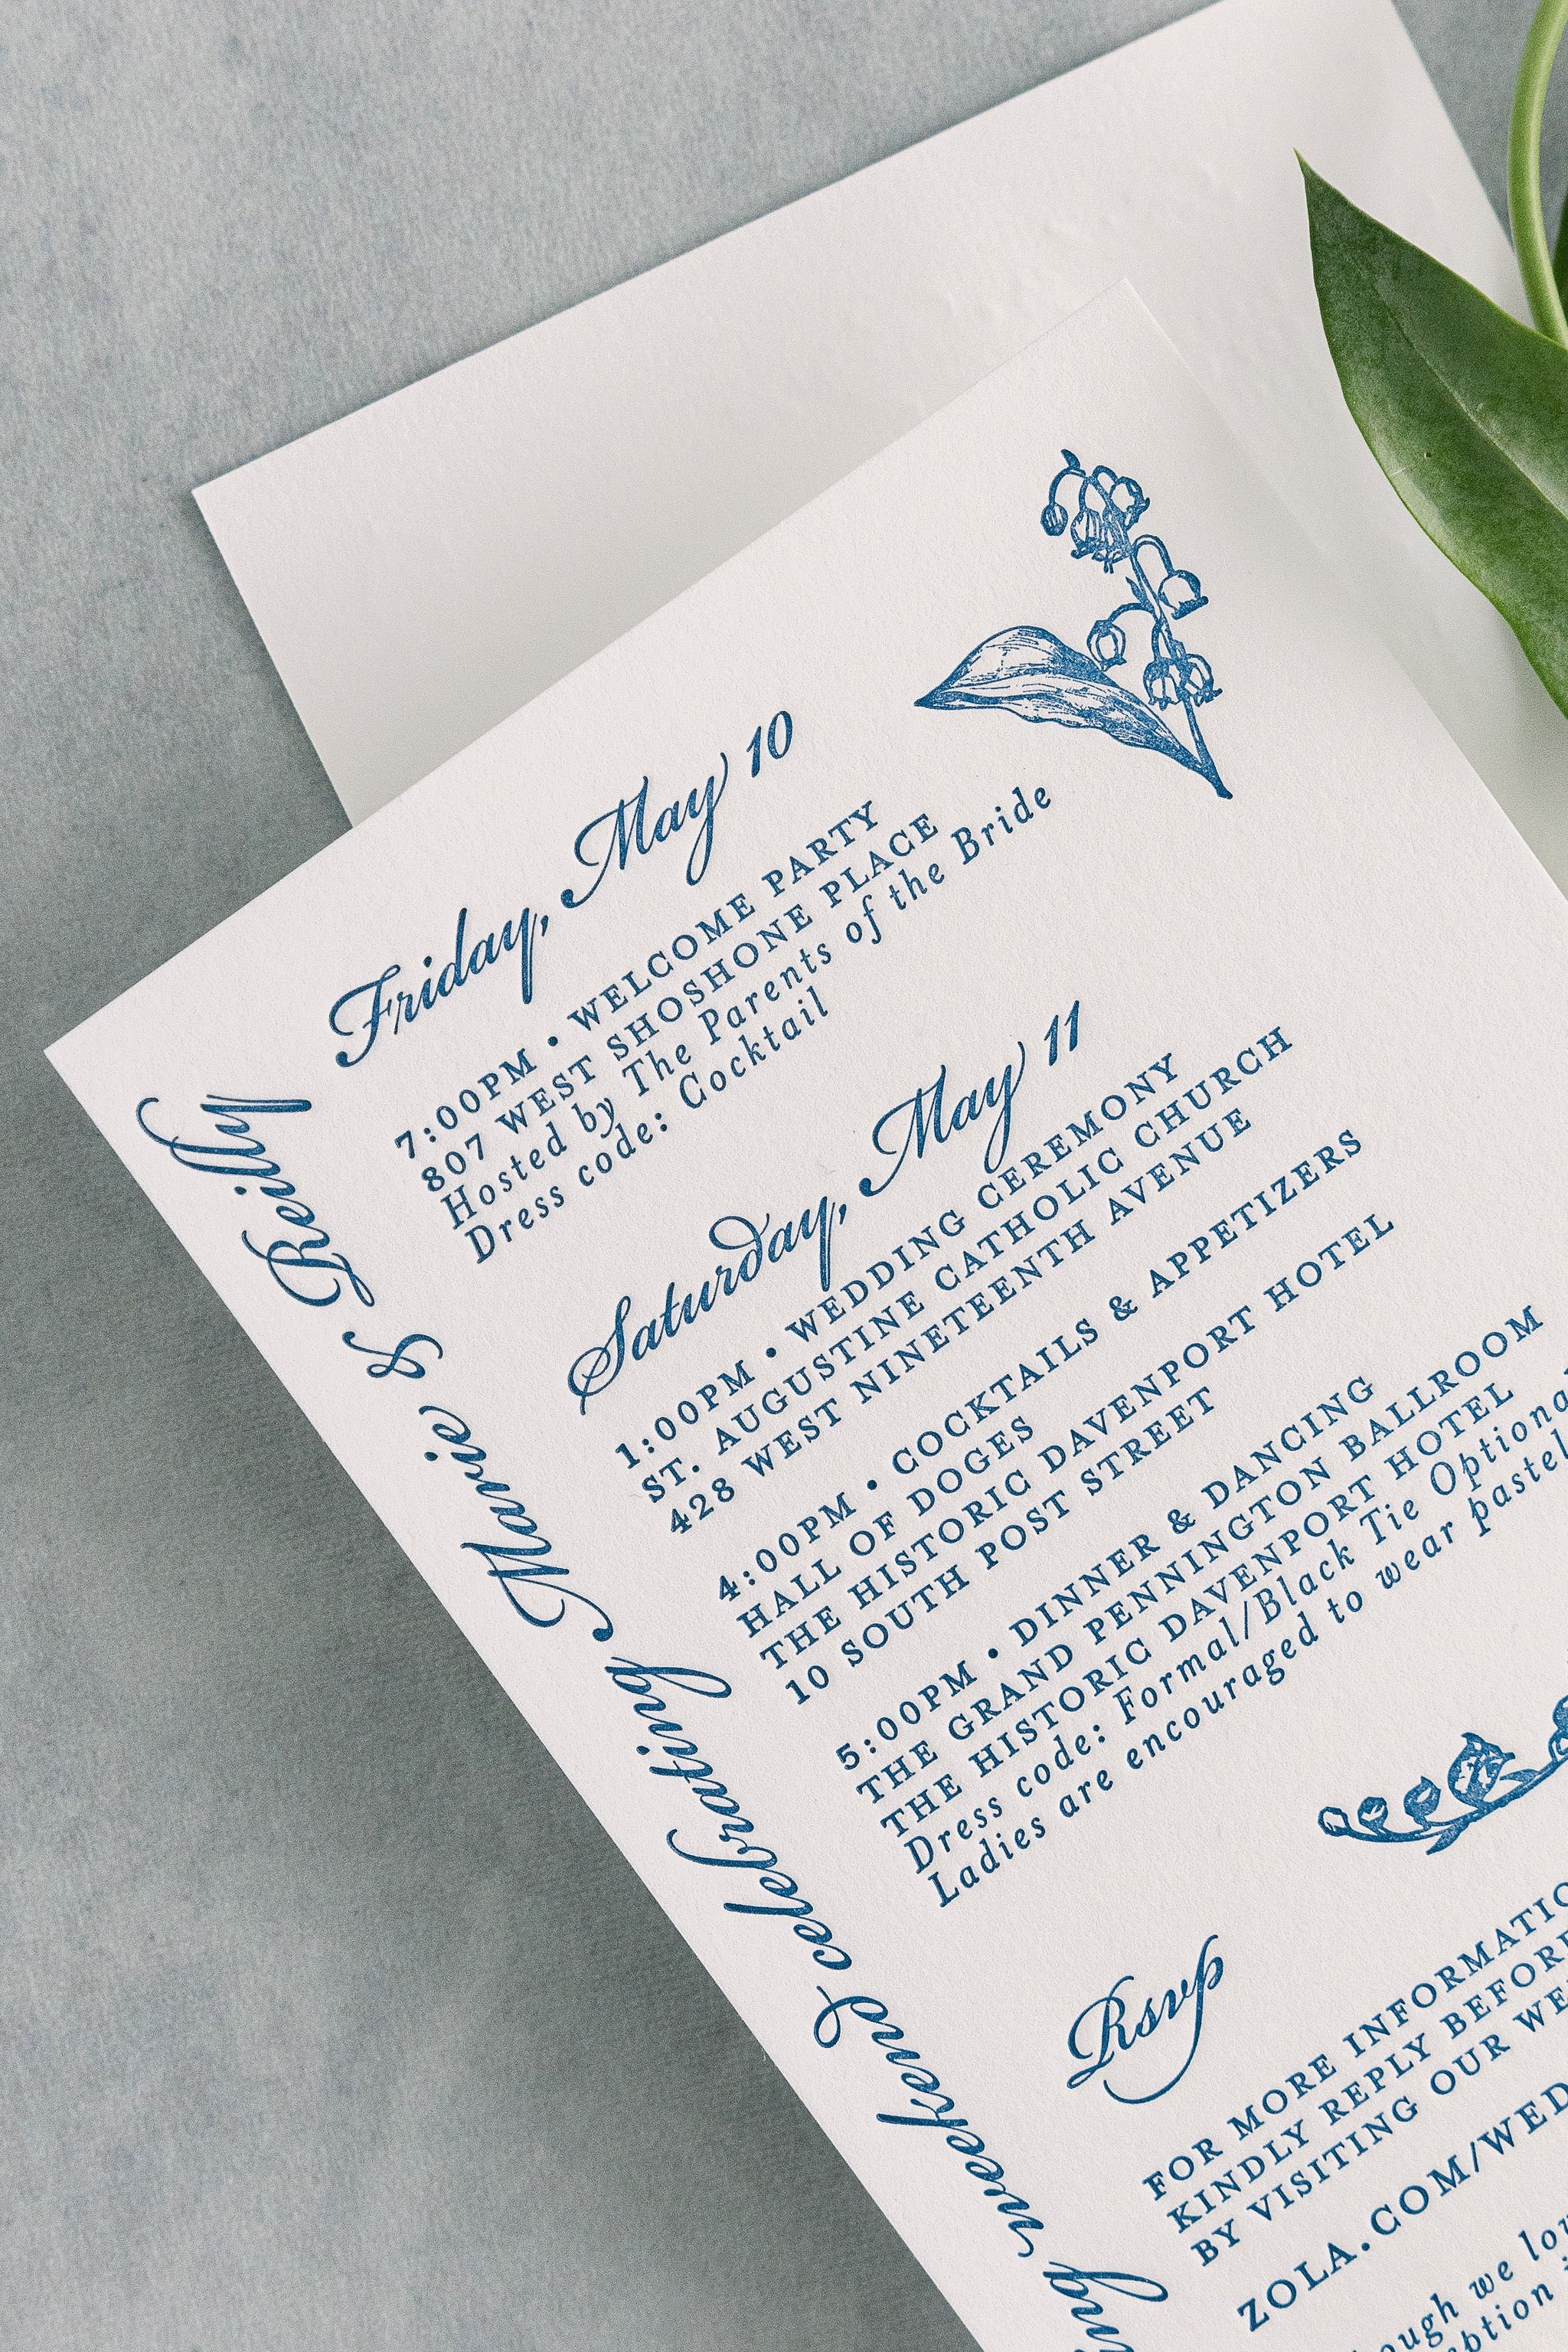 Friday, May 10
7:00PM • WELCOME PARTY
807 WEST SHOSHONE PLACE
Hosted by The Parents of the Bride
Dress code: Cocktail
Saturday, May 11
1:00PM • WEDDING CEREMONY
ST. AUGUSTINE CATHOLIC CHURCH
428 WEST NINETEENTH AVENUE
4:00PM • COCKTAILS & APPETIZERS
HALL OF DOGES
THE HISTORIC DAVENPORT HOTEL
10 SOUTH POST STREET
5:00PM • DINNER & DANCING
THE GRAND PENNINGTON BALLROOM
THE HISTORIC DAVENPORT HOTEL
Dress code: Formal/Black Tie Optional
Ladies are encouraged to wear pastel
Rsvp
FOR MORE INFORMATIO
KINDLY REPLY BEFORE
BY VISITING OUR WE
ZOLA.COM/WED
ough we lo
ption
weekend celebrating Marie & Reilly